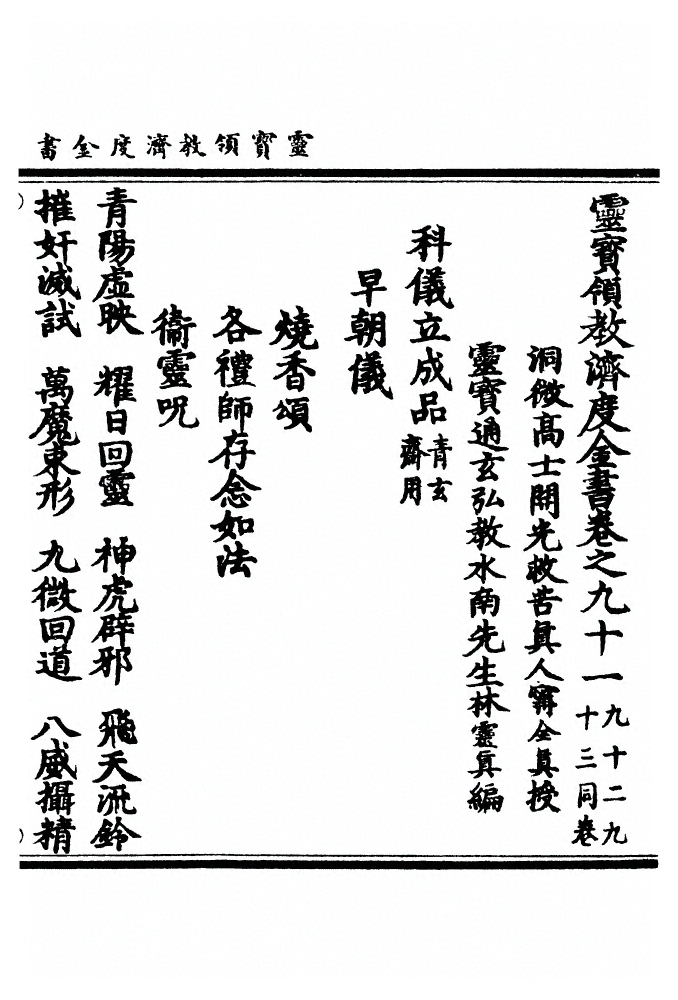 靈寶領教濟度金書
靈寶領教濟度金書卷之九十一九十二九十三同卷
洞微高士開光救苦眞人甯全眞授
靈寶通玄弘教水南先生林靈眞編
科儀立成品青玄齋用
早朝儀
燒香頌
各禮師存念如法
衞靈呪
青陽虛映　耀日回靈　神虎辟邪　飛天流鈴
摧奸滅試　萬魔束形　九微回道　八威攝精